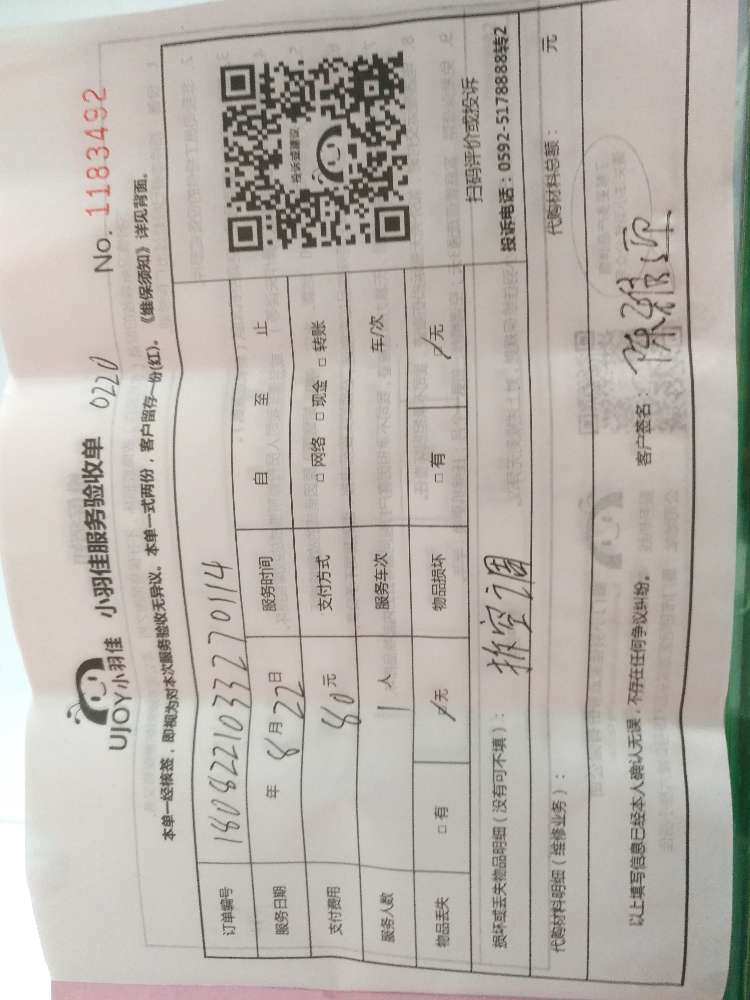 UJOY小羽佳 小羽佳服务验收单 0220 No. 1183492
本单一经核签，即视为对本次服务验收无异议。本单一式两份，客户留存一份(红)。《维保须知》详见背面。
订单编号 18082210332270114
服务日期 年 8月22日 服务时间 自 至 止
支付费用 80元 支付方式 □网络 □现金 □转账
服务人数 1人 服务车次 车/次
物品丢失 □有 ✓无 物品损坏 □有 ✓无
投诉或建议
扫码评价或投诉
投诉电话：0592-5178888转2
损坏或丢失物品明细（没有可不填）： 拆空调
代购材料明细（维修业务）： 代购材料总额： 元
以上填写信息已经本人确认无误，不存在任何争议纠纷。 客户签名：